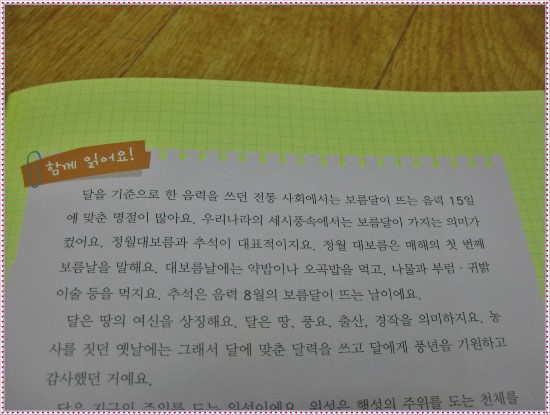 함께 읽어요!
달을 기준으로 한 음력을 쓰던 전통 사회에서는 보름달이 뜨는 음력 15일
에 맞춘 명절이 많아요. 우리나라의 세시풍속에서는 보름달이 가지는 의미가
컸어요. 정월대보름과 추석이 대표적이지요. 정월 대보름은 매해의 첫 번째
보름날을 말해요. 대보름날에는 약밥이나 오곡밥을 먹고, 나물과 부럼·귀밝
이술 등을 먹지요. 추석은 음력 8월의 보름달이 뜨는 날이에요.
달은 땅의 여신을 상징해요. 달은 땅, 풍요, 출산, 경작을 의미하지요. 농
사를 짓던 옛날에는 그래서 달에 맞춘 달력을 쓰고 달에게 풍년을 기원하고
감사했던 거예요.
달은 지구의 주위를 도는 위성이에요. 위성은 행성의 주위를 도는 천체를